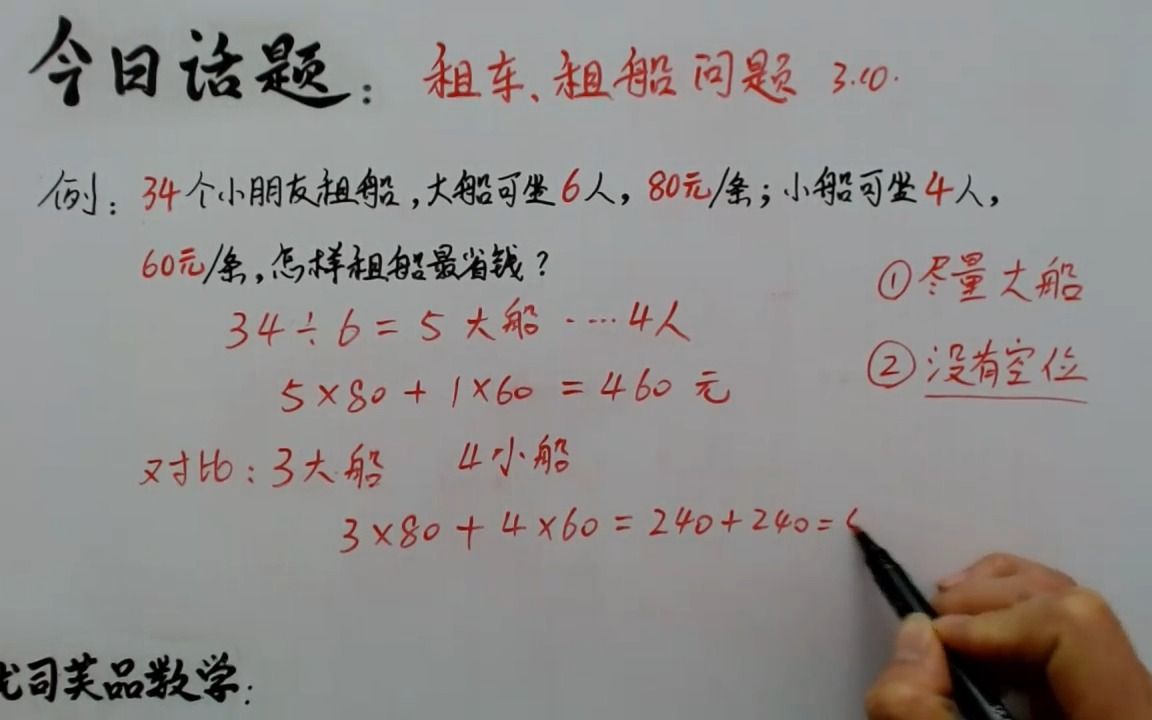 今日话题：租车、租船问题 3.10.
例：34个小朋友租船，大船可坐6人，80元/条；小船可坐4人，
60元/条，怎样租船最省钱？
①尽量大船
34÷6=5大船……4人
②没有空位
5×80+1×60=460元
对比：3大船 4小船
3×80+4×60=240+240=
司芙品数学：